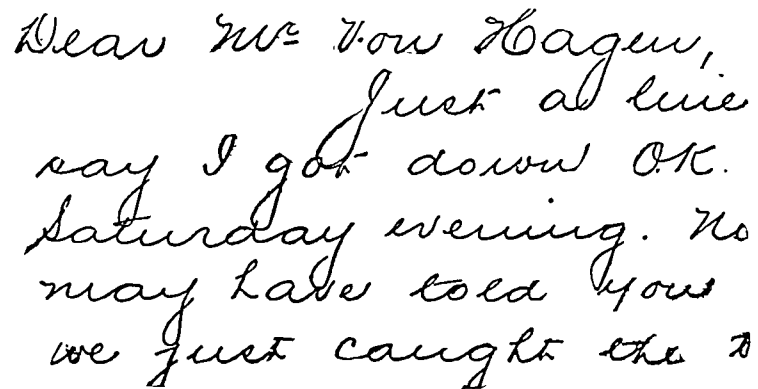 Dear Mr Von Hagen,
Just a line
say I got down O.K.
Saturday evening. No
may have told you
we just caught the